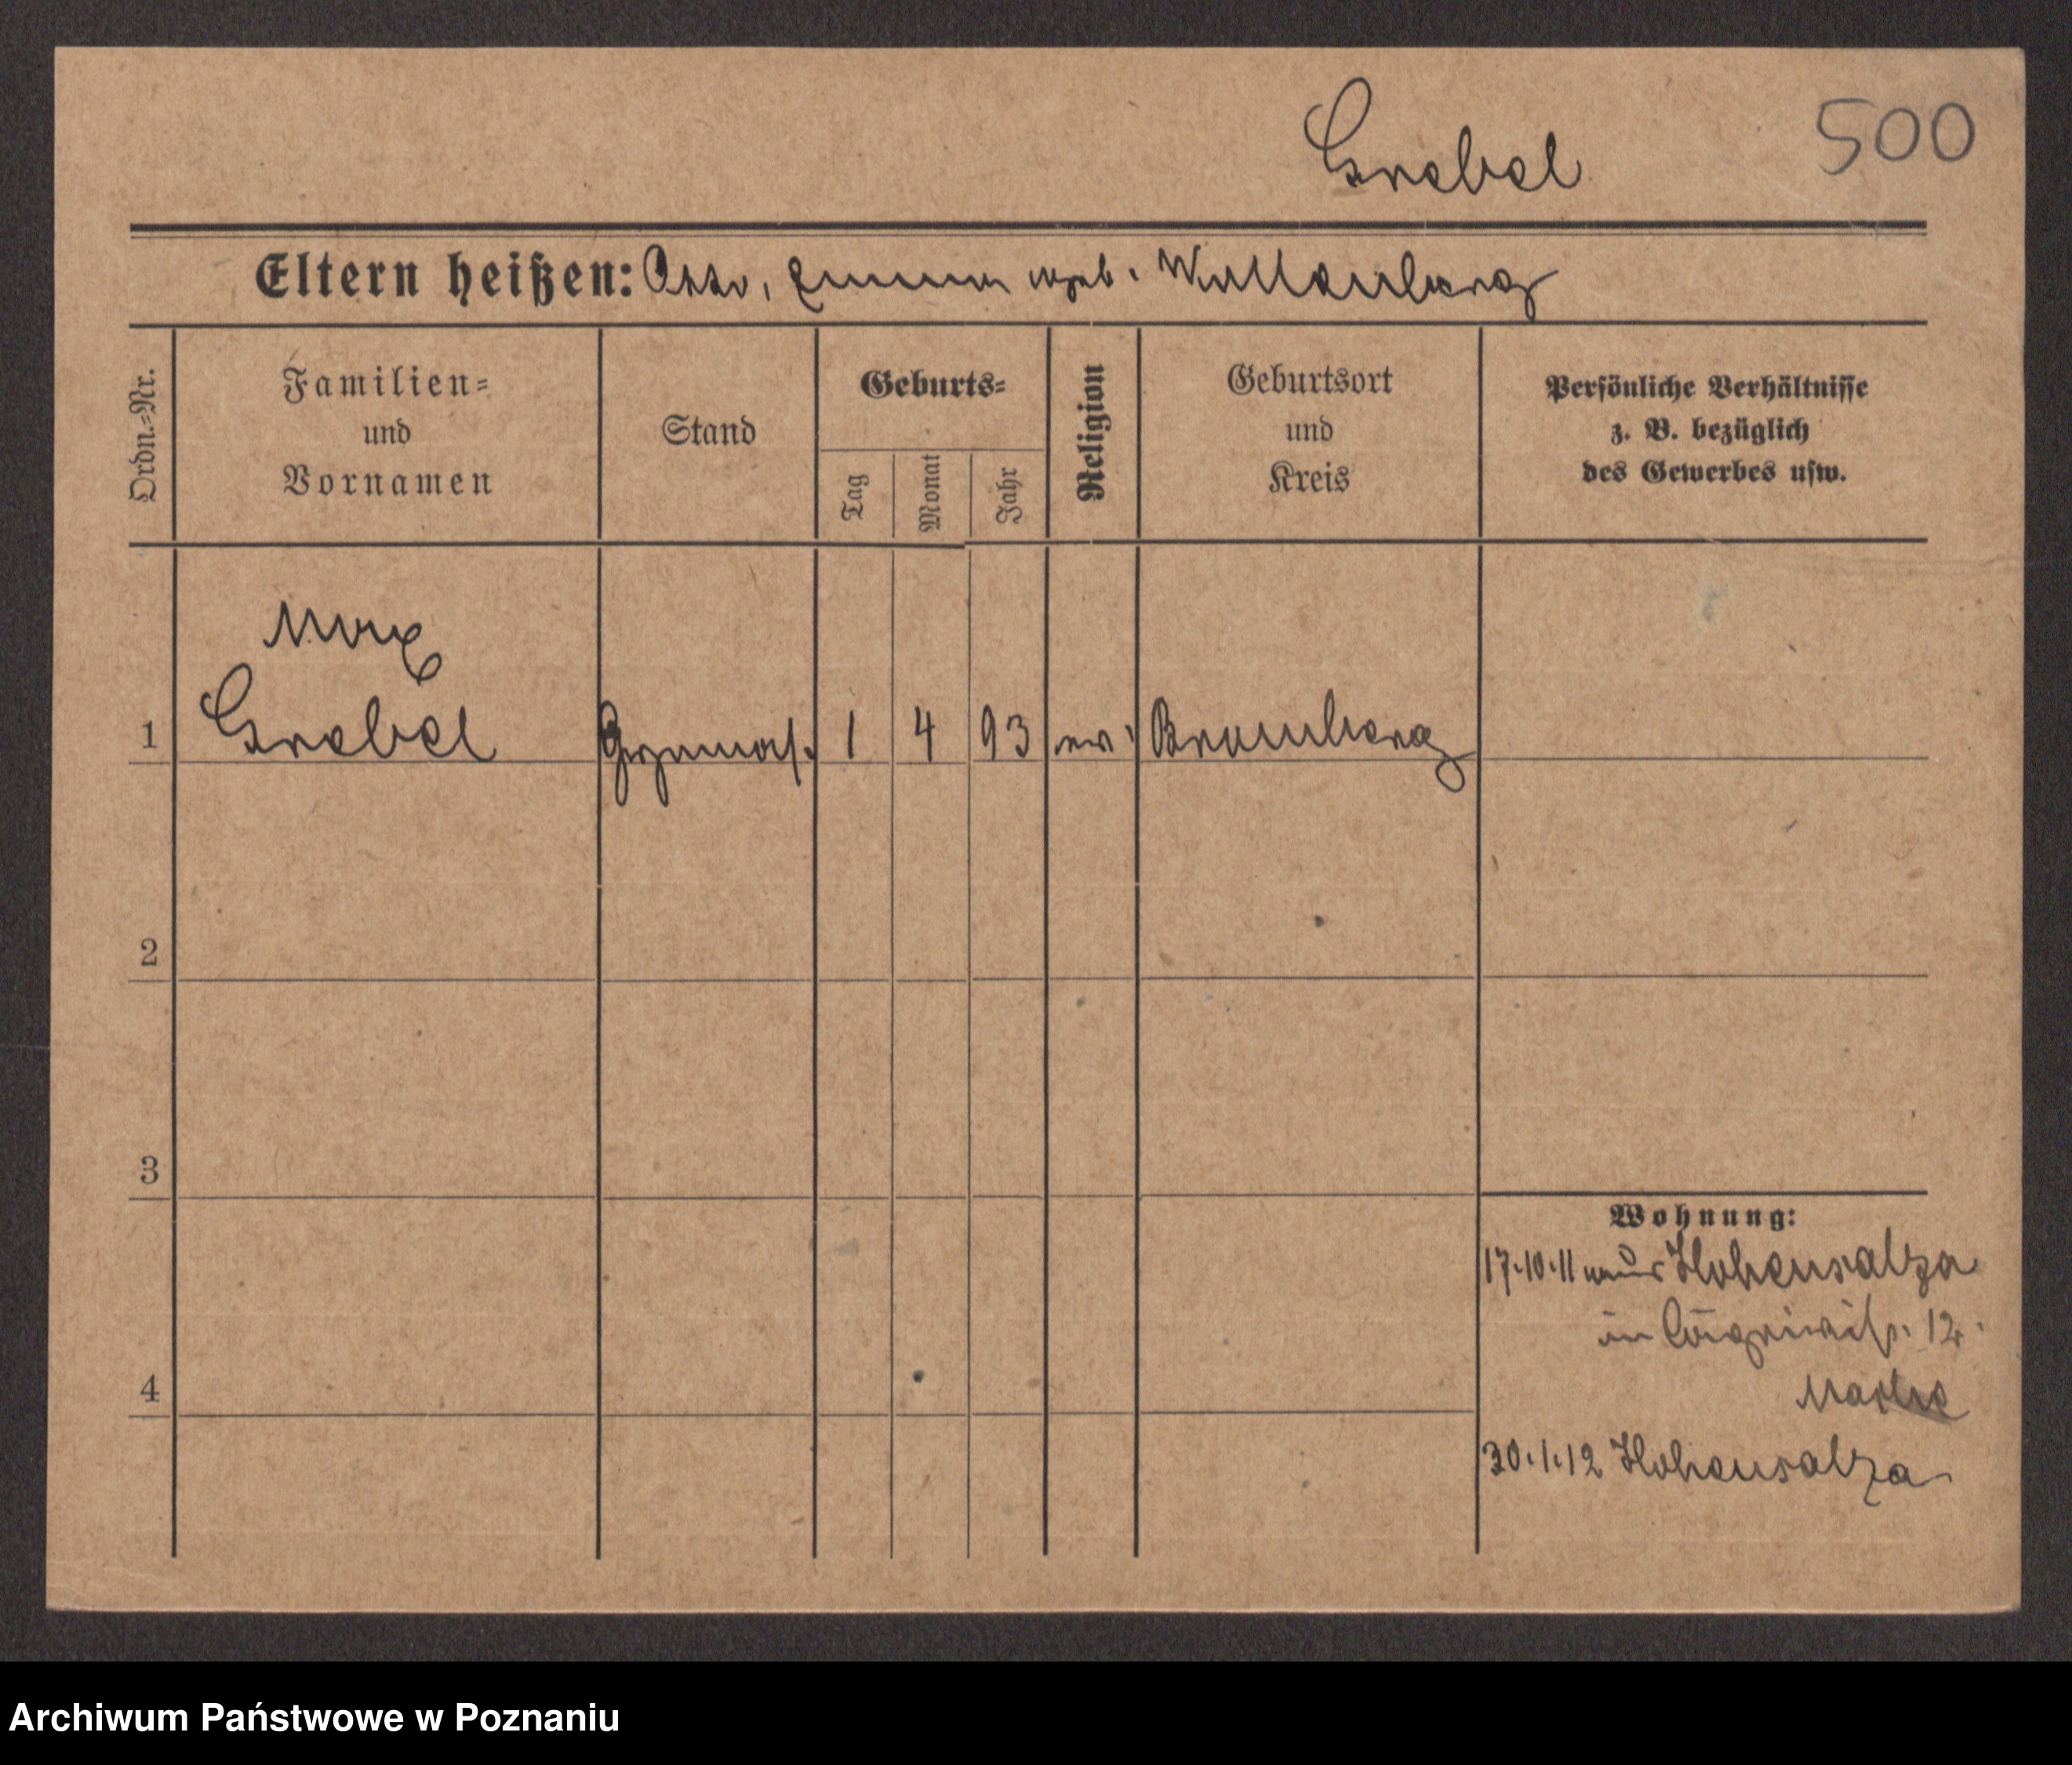 Grebel
500
Eltern heißen: Otto, Emma geb. Wallenberg
Ordn.=Nr.
Familien=
und
Vornamen
Stand
Geburts=
Tag
Monat
Jahr
Religion
Geburtsort
und
Kreis
Persönliche Verhältnisse
z. B. bezüglich
des Gewerbes usw.
Max
1 Grebel Gymnas. 1 4 93 ev. Bromberg
2
3
4
Wohnung:
17.10.11 aus Hohensalza
12.
30.1.12 Hohensalza
Archiwum Państwowe w Poznaniu